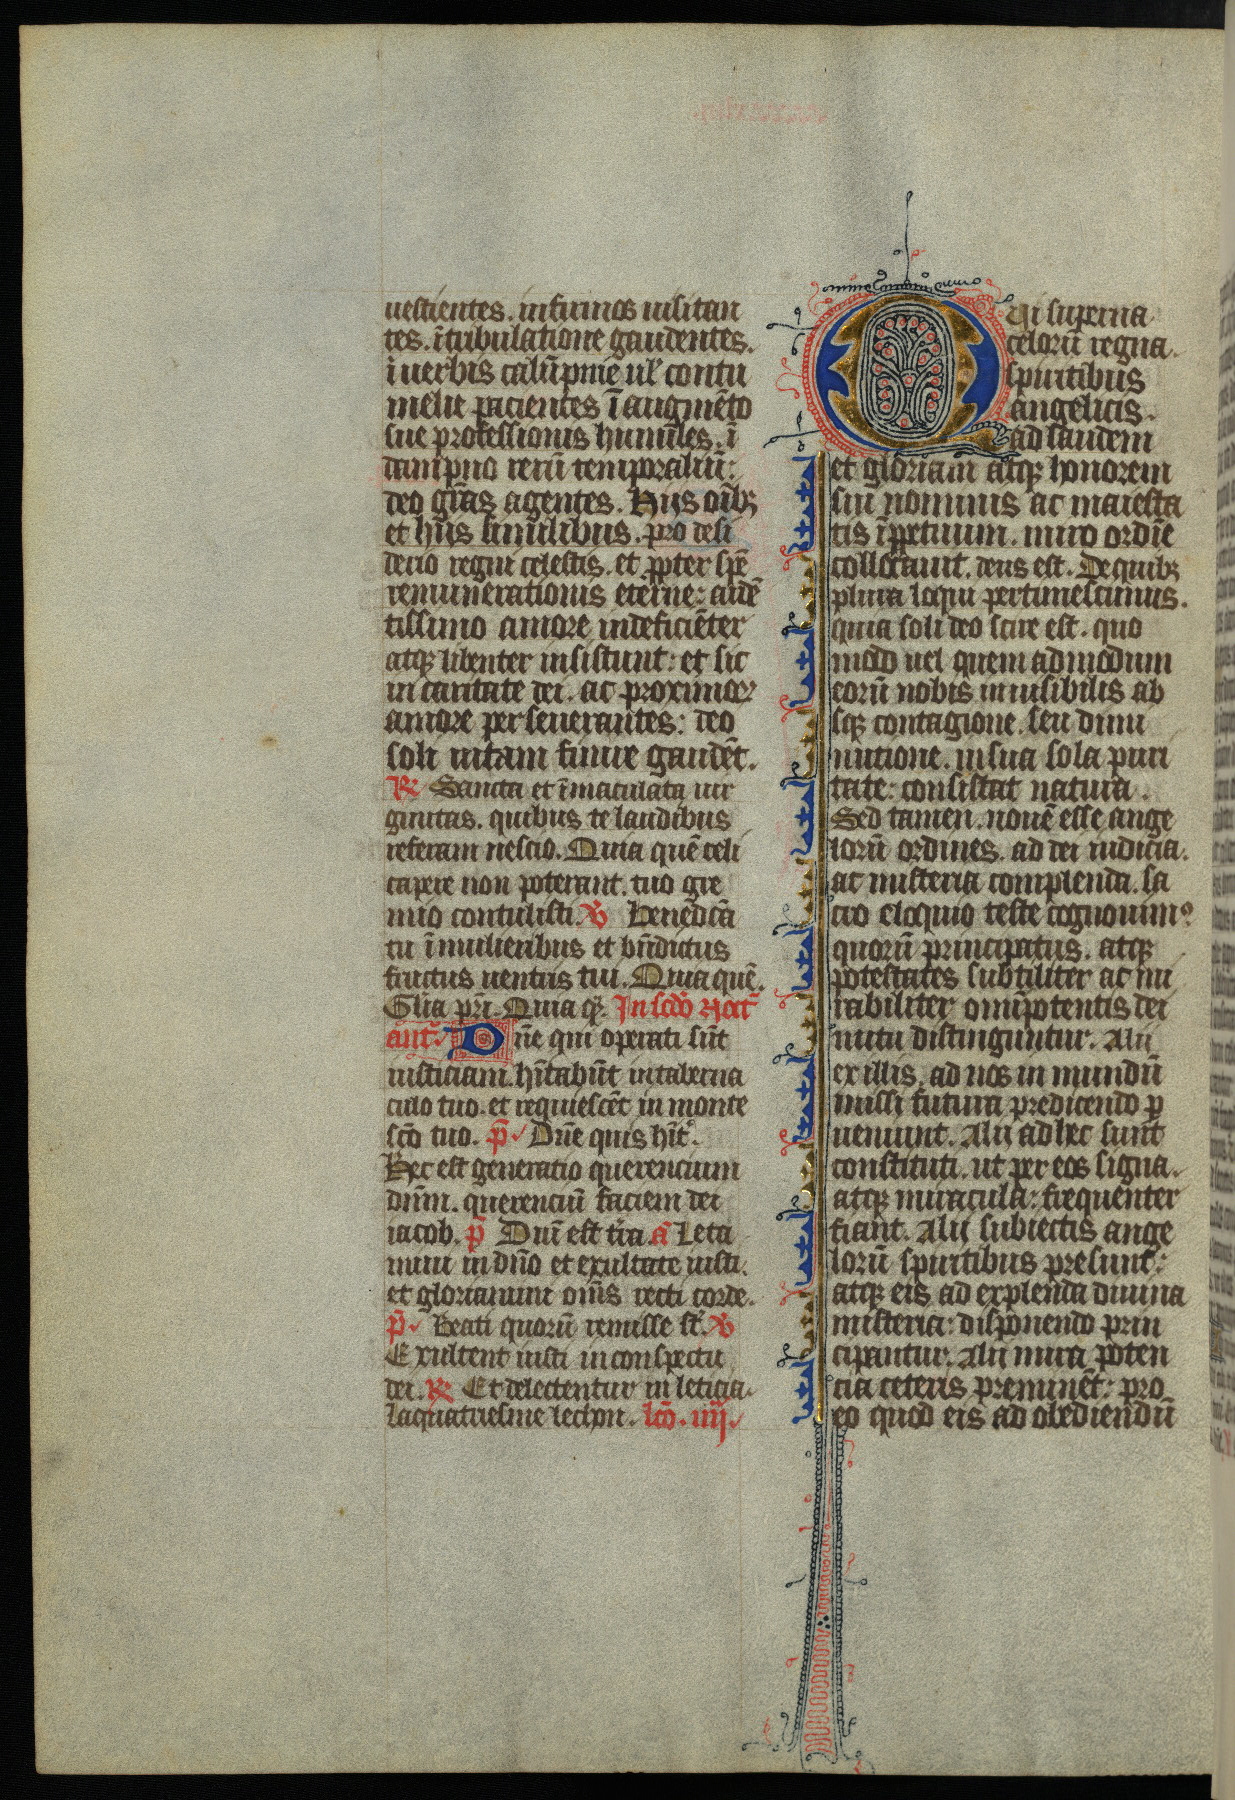 uestientes. infirmos uisitan
tes. ī tribulatione gaudentes.
ī uerbis calūpnie ul' contu
melie pacientes ī augmēto
sue professionis humiles. ī
dampno rerū temporaliū:
deo gr̄as agentes. Hijs oīb3
et hijs similibus. pro desi
derio regni celestis. et ꝓpter spē
remunerationis eterne: ardē
tissimo amore indeficiēter
atq3 libenter insistunt: et sic
in caritate dei. ac proximorꝝ
amore perseuerantes: deo
soli uitam finire gaudēt.
R̄ Sancta et īmaculata uir
ginitas. quibus te laudibus
referam nescio. Quia quē celi
capere non poterant. tuo gre
mio contulisti. V̄ Benedicā
tu ī mulieribus et bn̄dictus
fructus uentris tui. Quia quē.
Glia pr̄i. Quia q̄. In scd̄o noct̄
ant̄. Dn̄e qui operati sūt
iusticiam. hītabūt in taberna
culo tuo. et requiescēt in monte
sc̄o tuo. p̄ Dn̄e quis hīt.
Hec est generatio querencium
dn̄m. querenciū faciem dei
iacob. p̄ Dn̄i est tr̄a. a Leta
mini in dn̄o et exultate iusti.
et gloriamini om̄s recti corde.
p̄ Beati quorū remisse st̄. V̄
Exultent iusti in conspectu
dei. R̄ Et delectentur in leticia.
Laquatriesme lechon. lc̄o. iiij.
Qui superna
celorū regna.
spiritibus
angelicis.
ad laudem
et gloriam atq3 honorem
sui nominis ac maiesta
tis ī ꝑpetuum. miro ordīe
collocauit. deus est. De quib3
plura loqui pertimescimus.
quia soli deo scire est. quo
modo uel quemadmodum
eorū nobis inuisibilis ab
sq3 contagione. seu dimi
nutione. in sua sola puri
tate: consistat natura.
Sed tamen. nouē esse ange
lorū ordines. ad dei iudicia.
ac misteria complenda. sa
cro eloquio teste cognouimꝰ
quorū principatus. atq3
potestates subtiliter ac mi
rabiliter om̄ipotentis dei
nutu distinguntur. Alij
ex illis. ad nos in mundū
missi futura predicendo ꝑ
ueniunt. Alij ad hec sunt
constituti. ut per eos signa.
atq3 miracula: frequenter
fiant. Alij subiectis ange
lorū spiritibus presunt:
atq3 eis ad explenda diuina
misteria: disponendo prin
cipantur. Alij mira poten
cia ceteris preminēt: pro
eo quod eis ad obediendū